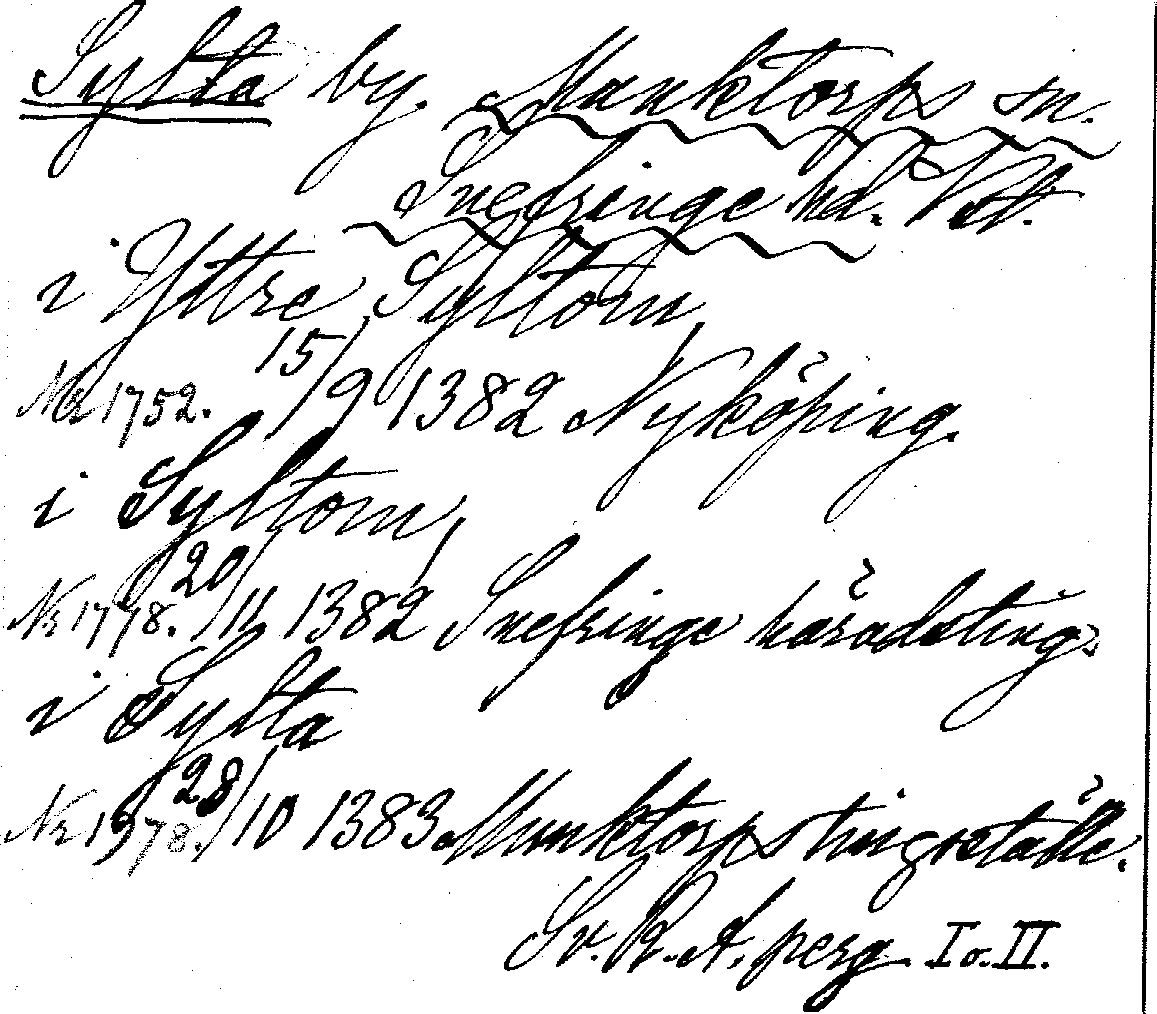 Sylta by. Munktorps sn.
Snefringe hd. Vstl.
i Yttre Syltom,
Nr 1752. 15/9 1382 Nyköping.
i Syltom,
Nr 1778. 20/11 1382 Snefringe häradsting.
i Sylta
Nr 1978. 28/10 1383 Munktorps tingställe.
Sv. R. A. perg. I o. II.